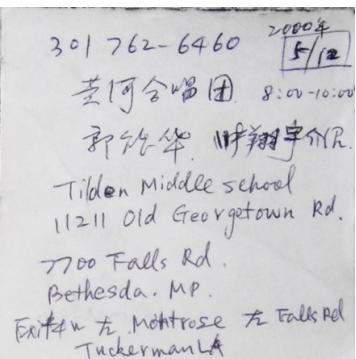 2000年
301 762-6460
5/12
黄河合唱团 8:00-10:00
郭 华 叶翔宇介绍
Tilden Middle school
11211 Old Georgetown Rd.
7700 Falls Rd.
Bethesda. MD.
Exit 4 W 左 Montrose 左 Falls Rd
Tuckerman LA